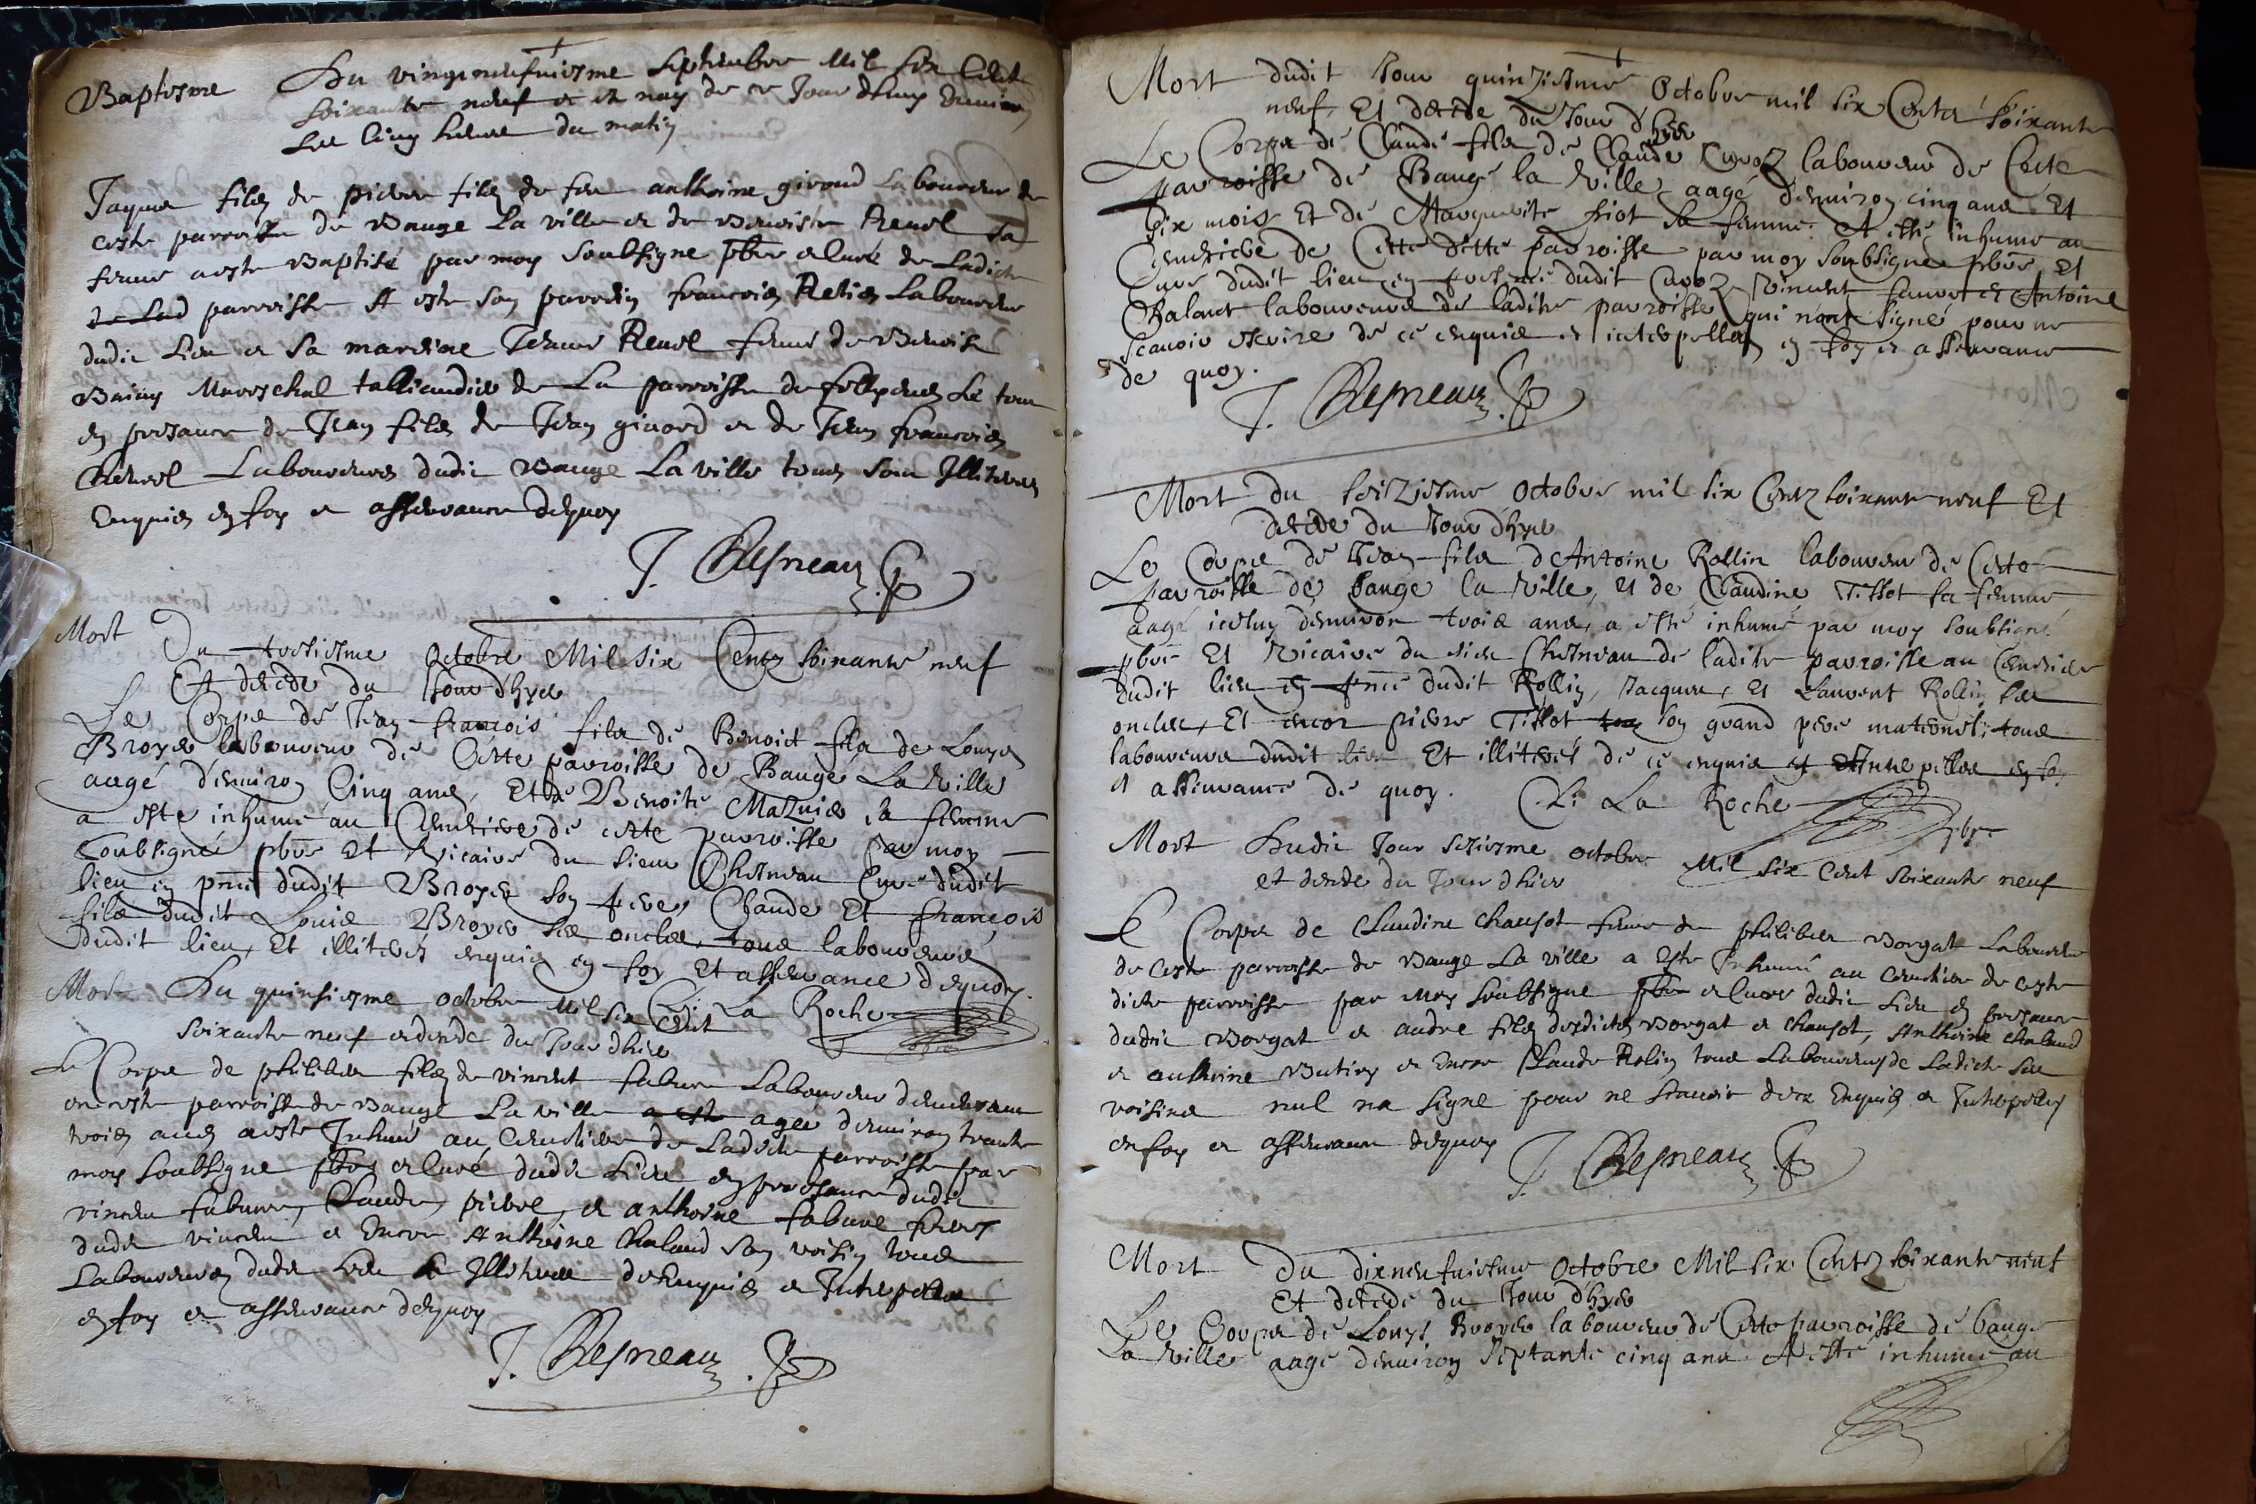 Baptesme Du vingt neufuiesme Septembre Mil Six Cent
soixante neuf et est nay de ce Jour dhuy enuiron
les cinq heures du matin
Jaques filz de pierre filz de feu anthoine giroud Laboureur de
ceste parroisse de Bauge La ville et de Benoiste Reuel sa
feme a este Baptisé par moy Soubsigne pbre et Curé de Ladicte
de Lad parroisse A este son parrdin francois Retis Laboureur
dudit Lieu et sa mardine Jeane Reuel feme de Benoist
Mareschal tallieandier de La parroisse de Le tout
en presance de Jean filz de Jean girard et de Jean francois
Reuel Laboureurs dudit Bauge La ville tous Sont Illiteres
Enquis en foy et asseurance dequoy
J. Chesneau
Mort Du troisiesme Octobre Mil Six Centz Soixante neuf
Et decede du Jour d'hyer
Le Corps de Jean francois fils de Benoict fils de Louys
Broyer laboureur de Cette parroisse de Baugé La Ville
aagé d'enuiron Cinq ans, Et de Benoite Maznier sa femme
a este inhumé au Cemetiere de cette parroisse par moy
Soubsigné pbre Et Vicaire du sieur Chesneau Curé dudit
lieu en pnce dudit Broyer son pere, Claude Et françois
fils dudit Louis Broyer ses oncles, tous laboureurs
dudit lieu, Et illiterés enquis en foy Et asseurance dequoy.
C. La Roche
Mort Du quinsiesme octobre Mil Six Cent
Soixante neuf et decede du Jour dhier
Le Corps de philiber filz de vincent fabure Laboureur demeurant
en ceste parroisse de Bauge La ville a este agée denuiron trente
trois ans a este Inhumé au Cemetiere de Ladicte parroisse par
moy Soubsigne pbre et Curé dudit Lieu en presance dudit
vincent fabure, Claude, pierre, et anthoine fabure freres
dudit vincent et Encor Anthoine Chaland son voisin tous
Laboureurs dudit Lieu et Illiteres de Enquis et Interpelles
en foy et asseurance dequoy
J. Chesneau
Mort dudit Jour quinziesme Octobre mil six Centz soixante
neuf, Et decede du Jour d'hyer
Le Corps de Claude fils de Claude Cuvoz laboureur de Cete
parroisse de Baugé la Ville, aagé d'enuiron cinq ans Et
six mois Et de Marguerite friot sa femme. A esté inhumé au
Cemetiere de Cette ditte parroisse par moy soubsigné pbre, Et
Curé dudit lieu en presence dudit Cuvoz, Vincent faure et Antoine
Chalant laboureurs de ladite parroisse, qui n'ont signé pour ne
scauoir escrire de ce enquis et interpellés en foy et asseurance
de quoy.
J. Chesneau
Mort du seiziesme Octobre mil six Centz soixante neuf Et
decede du Jour d'hyer
Le Corps de Jean fils d'Antoine Rollin laboureur de Cete
parroisse de Bauge la Ville, et de Claudine Tissot sa femme
aagé iceluy d'enuiron trois ans, a esté inhumé par moy soubsigné
pbre Et Vicaire du sieur Chesneau de ladite parroisse au Cemetiere
dudit lieu en pnce dudit Rollin, Jacques, Et Laurent Rollin ses
oncles, Et encor pierre Tissot son grand pere maternel; tous
laboureurs dudit lieu Et illiterés de ce enquis et Interpelles en foy
et asseurance de quoy. C. La Roche
pbre
Mort Dudit Jour seziesme octobre Mil six Cent soixante neuf
et decede du Jour dhier
Le Corps de Claudine Chaussot feme de philiber Borgat Laboureur
de ceste parroisse de Bauge La ville a este Inhumé au cemetiere de ceste
dicte parroisse par Moy Soubsigne pbre et Curé dudit Lieu en presance
dudit Borgat et andre filz desdictes Borgat et Chaussot, Anthoine Chaland
et anthoine Butin et Encor Claude Rolin tous Laboureurs de Ladicte Lieu
voisins nul na signe pour ne Scauoir dece Enquis et Interpelles
en foy et asseurance dequoy
J. Chesneau
Mort Du dixneufuiesme Octobre Mil six Centz soixante neuf
Et decede du Jour d'hyer
Le Corps de Louys Broyer laboureur de Cete parroisse de bauge
La Ville aagé d'enuiron septante cinq ans A esté inhumé au